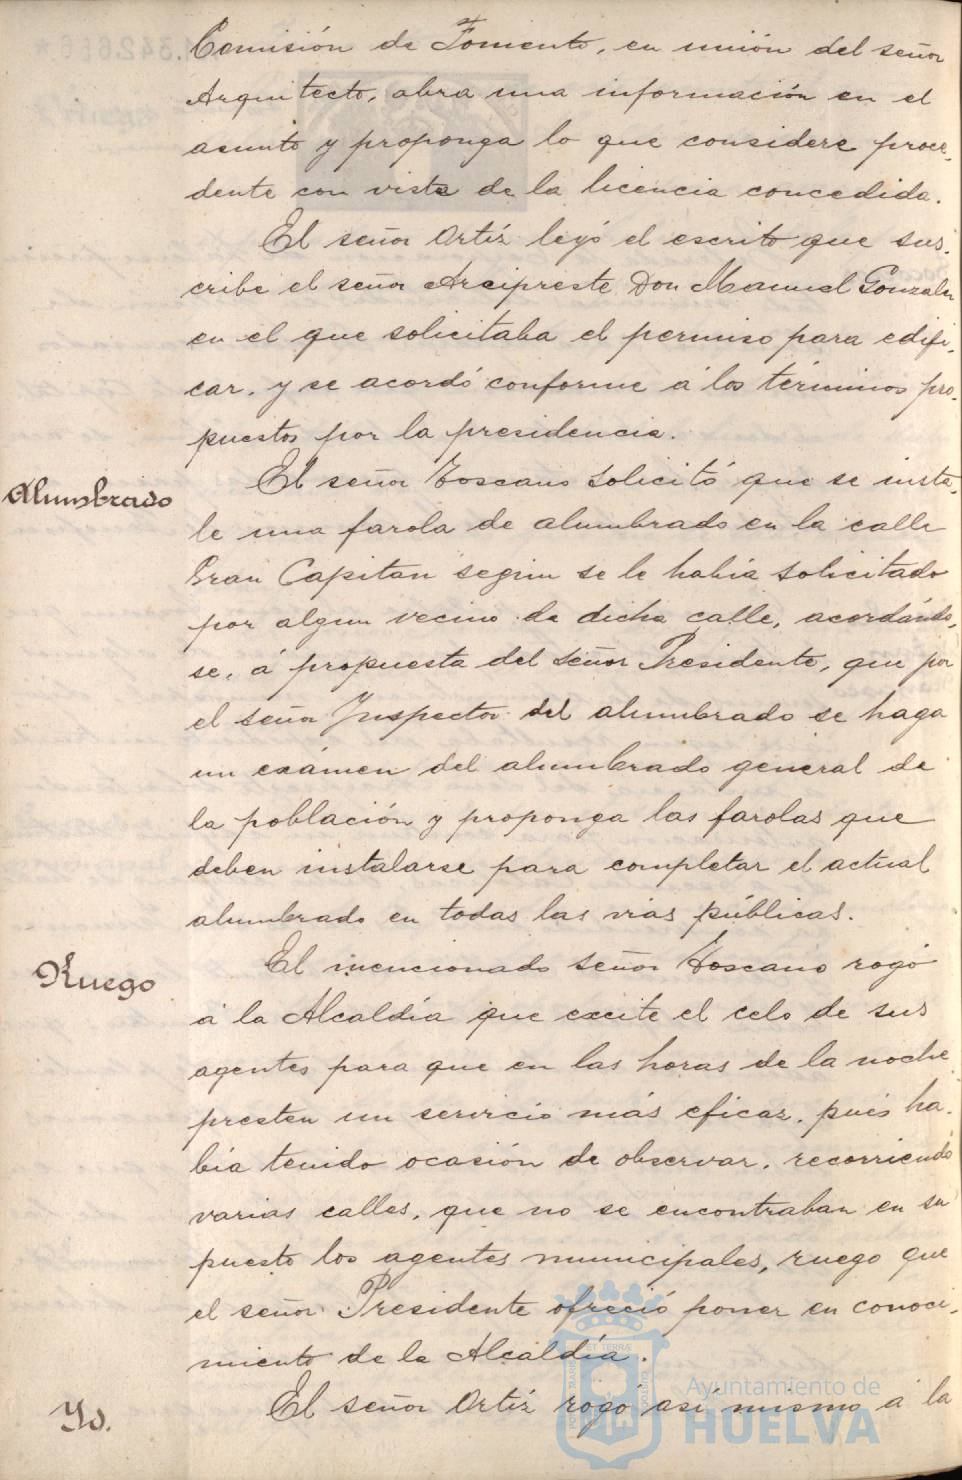 Comisión de Fomento, en unión del señor
Arquitecto, abra una información en el
asunto y proponga lo que considere proce-
dente con vista de la licencia concedida.
El señor Ortíz leyó el escrito que sus-
cribe el señor Arcipreste Don Manuel Gonzalez
en el que solicitaba el permiso para edifi-
car, y se acordó conforme á los términos pro-
puestos por la presidencia.
Alumbrado
El señor Toscano solicitó que se insta-
le una farola de alumbrado en la calle
Gran Capitan segun se le había solicitado
por algun vecino de dicha calle, acordándo-
se, á propuesta del señor Presidente, que por
el señor Inspector del alumbrado se haga
un exámen del alumbrado general de
la población y proponga las farolas que
deben instalarse para completar el actual
alumbrado en todas las vías públicas.
Ruego
El mencionado señor Toscano rogó
á la Alcaldía que excite el celo de sus
agentes para que en las horas de la noche
presten un servicio más eficaz, pués ha-
bía tenido ocasión de observar, recorriendo
varias calles, que no se encontraban en su
puesto los agentes municipales, ruego que
el señor Presidente ofreció poner en conoci-
miento de la Alcaldía.
Yd.
El señor Ortíz rogó así mismo á la
Ayuntamiento de
HUELVA